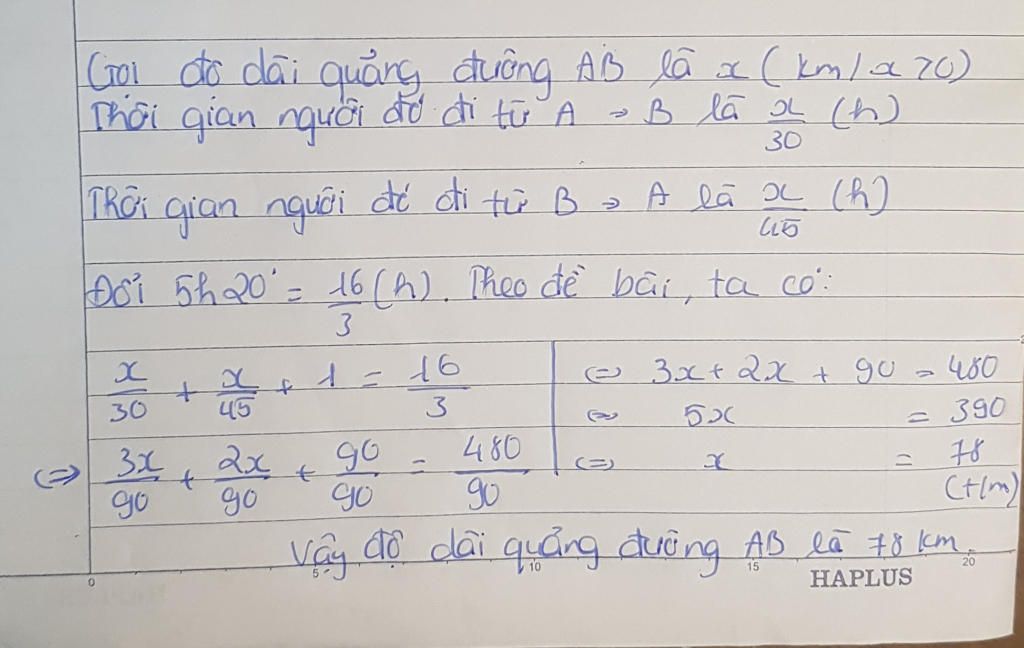 Gọi độ dài quảng đường AB là x (km/x>0)
Thời gian người đó đi từ A → B là x/30 (h)
Thời gian người đó đi từ B → A là x/45 (h)
Đổi 5h20' = 16/3 (h). Theo đề bài, ta có:
x/30 + x/45 + 1 = 16/3
<=> 3x/90 + 2x/90 + 90/90 = 480/90
<=> 3x + 2x + 90 = 480
<=> 5x = 390
<=> x = 78
(t/m)
Vậy độ dài quảng đường AB là 78 km.
0 5 10 15 20
HAPLUS